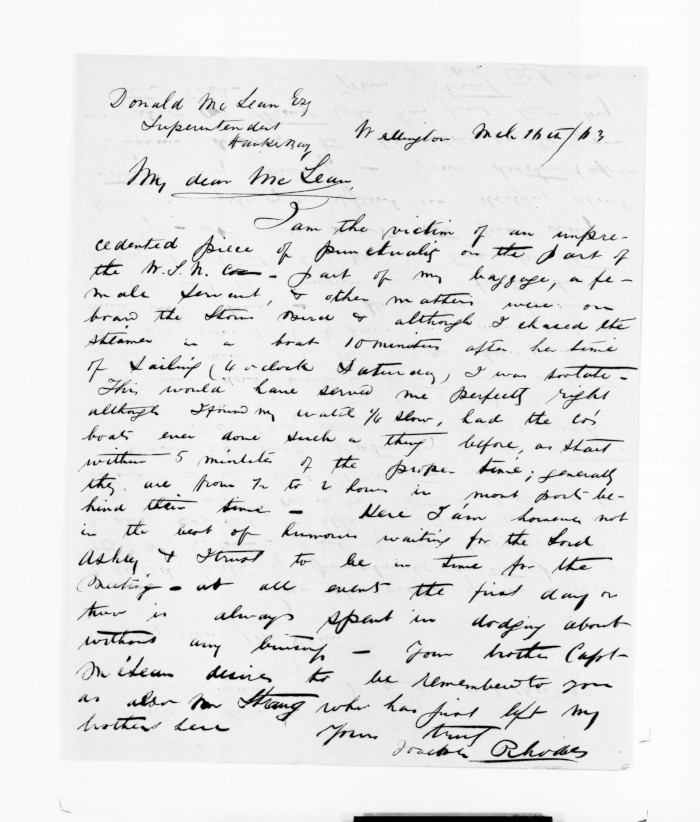 Donald McLean Esq
Superintendent
Hawkes Bay
Wellington Mch 16th/63
My dear McLean,
I am the victim of an unpre-
cedented piece of punctuality on the part of
the W.S.N. Co - part of my baggage, a fe-
male servant, & other matters were on
board the Storm Bird & although I chased the
steamer in a boat 10 minutes after her time
of sailing (4 o'clock Saturday) I was too late -
This would have served me perfectly right
although I found my watch 1/4 slow, had the Co's
boats ever done such a thing before, as start
within 5 minutes of the proper time; generally
they are from 1/2 to 2 hours in most ports be-
hind their time - Here I am however not
in the best of humours waiting for the Lord
Ashley & I trust to be in time for the
Meeting - at all events the first day or
two is always spent in dodging about
without any business - Your brother Capt
McLean desires to be remembered to you
as also Strang who has just left my
brothers here Yours truly
Joseph Rhodes